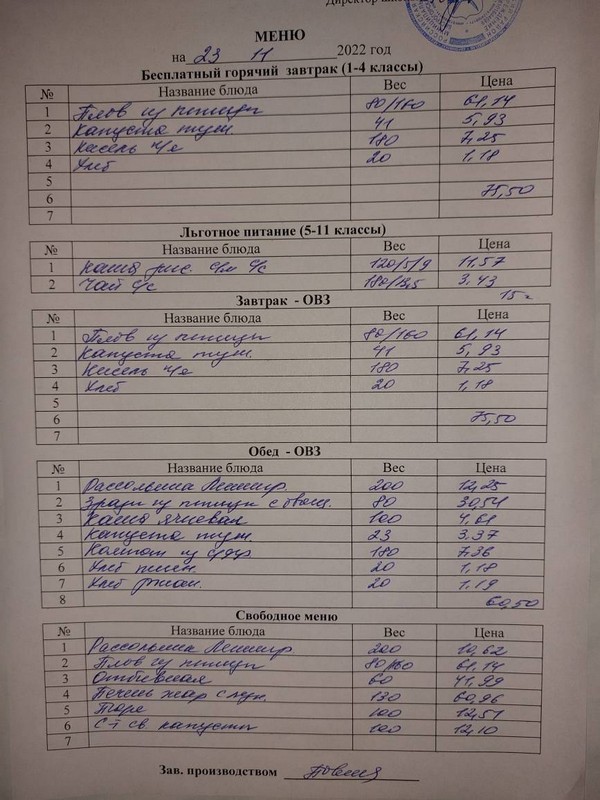 Директор
МЕНЮ
на 23 11 2022 год
Бесплатный горячий завтрак (1-4 классы)
№ Название блюда Вес Цена
1 Плов из птицы 80/160 61,14
2 Капуста туш. 41 5,93
3 Кисель п/я 180 7,25
4 Хлеб 20 1,18
5
6 75,50
7
Льготное питание (5-11 классы)
№ Название блюда Вес Цена
1 Каша рис. с/м с/с 120/5/9 11,57
2 Чай с/с 180/13,5 3,43
15
Завтрак - ОВЗ
№ Название блюда Вес Цена
1 Плов из птицы 80/160 61,14
2 Капуста туш. 41 5,93
3 Кисель п/я 180 7,25
4 Хлеб 20 1,18
5
6 75,50
7
Обед - ОВЗ
№ Название блюда Вес Цена
1 Рассольник Ленингр. 200 12,25
2 Зразы из птицы с овощ. 80 30,54
3 Каша ячневая 100 4,61
4 Капуста туш. 23 3,37
5 Компот из с/фр 180 7,36
6 Хлеб пшен. 20 1,18
7 Хлеб ржан. 20 1,19
8 60,50
Свободное меню
№ Название блюда Вес Цена
1 Рассольник Ленингр 200 10,62
2 Плов из птицы 80/160 61,14
3 Отбивная 60 41,99
4 Печень жар с лук. 130 60,96
5 Пюре 100 12,51
6 С-т св. капусты 100 12,10
7
Зав. производством